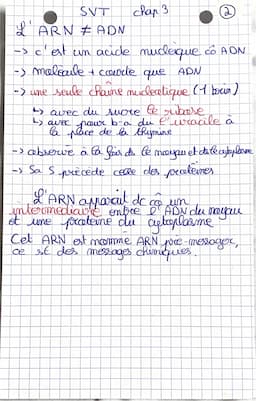 SVT chap 3 ②
L'ARN ≠ ADN
-> c'est un acide nucléique cō ADN
-> molécule + courte que ADN
-> une seule chaîne nucléotique (-1 brin)
↳ avec du sucre le ribose
↳ avec pour b-a du l'uracile à
la place de la thymine
-> observé à la fois ds le noyau et ds le cytoplasme
-> Sa S précède celle des protéines
L'ARN apparaît dc cō un
intermédiaire entre l'ADN du noyau
et une protéine du cytoplasme
Cet ARN est nommé ARN pré-messager,
ce st des messages chimiques.